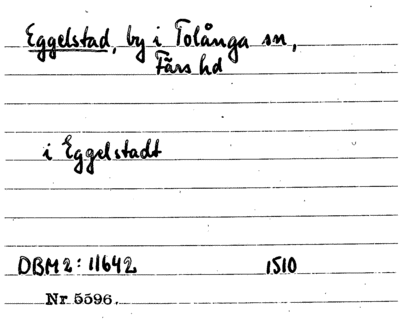 Eggelstad, by i Tolånga sn,
Färs hd
i Eggelstadt
DBM 2: 11642 1510
Nr 5596.